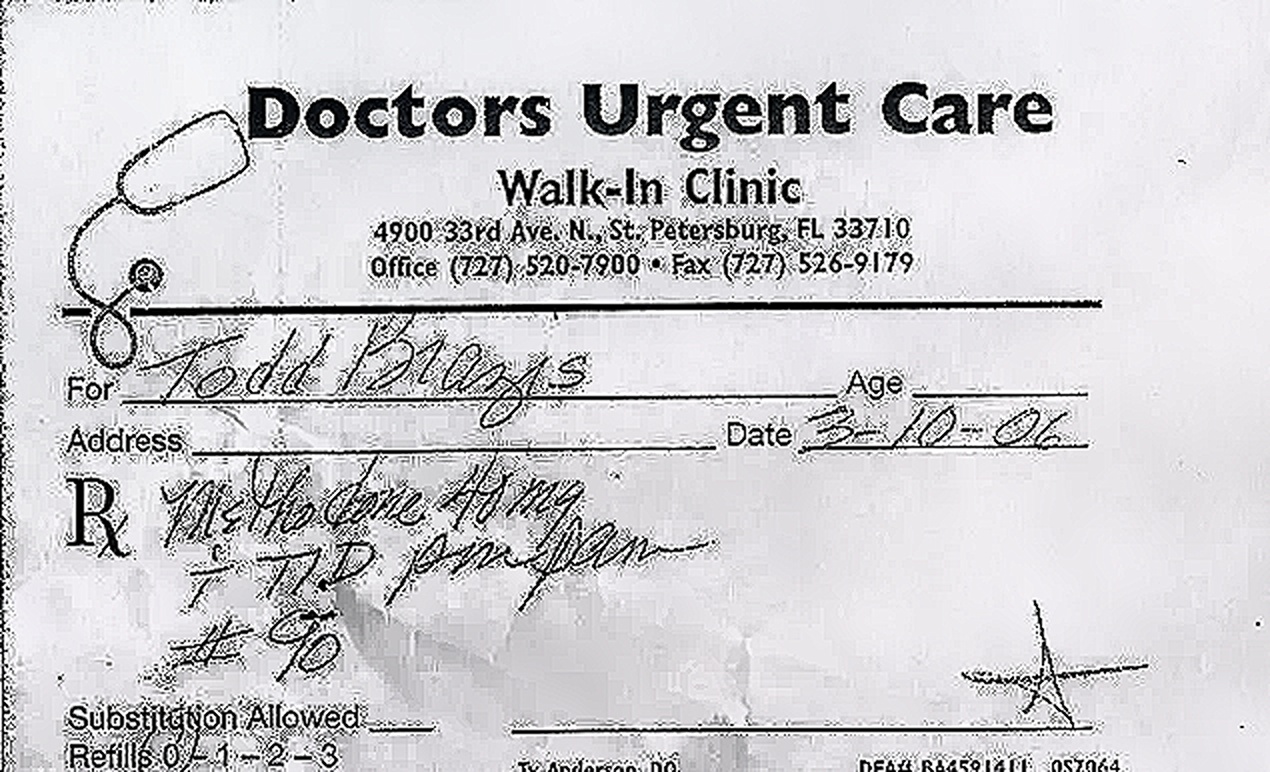 Doctors Urgent Care
Walk-In Clinic
4900 33rd Ave. N., St. Petersburg, FL 33710
Office (727) 520-7900 • Fax (727) 526-9179
For Todd Age
Address Date 3-10-06
Rx Methadone 40 mg
T TID prn pain
# 90
Substitution Allowed
Refills 0 – 1 – 2 – 3
Ty Anderson, DO. DEA# BA4591411 OS7064